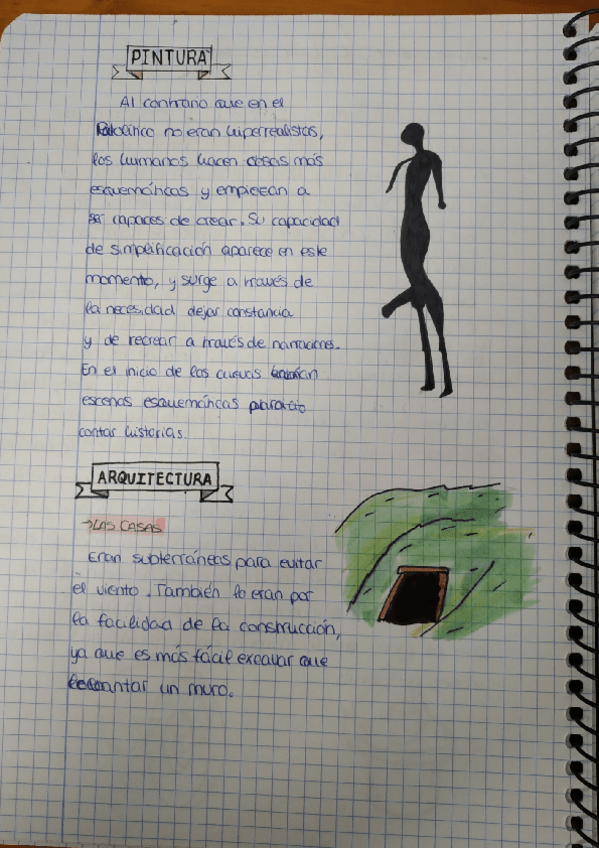 PINTURA
Al contrario que en el
Paleolítico no eran hiperrealistas,
los humanos hacen cosas más
esquemáticas y empiezan a
ser capaces de crear. Su capacidad
de simplificación aparece en este
momento, y surge a través de
la necesidad dejar constancia
y de recrear a través de narraciones.
En el inicio de las cuevas
escenas esquemáticas para
contar historias.
ARQUITECTURA
→LAS CASAS
Eran subterráneas para evitar
el viento. También lo eran por
la facilidad de la construcción,
ya que es más fácil excavar que
levantar un muro.